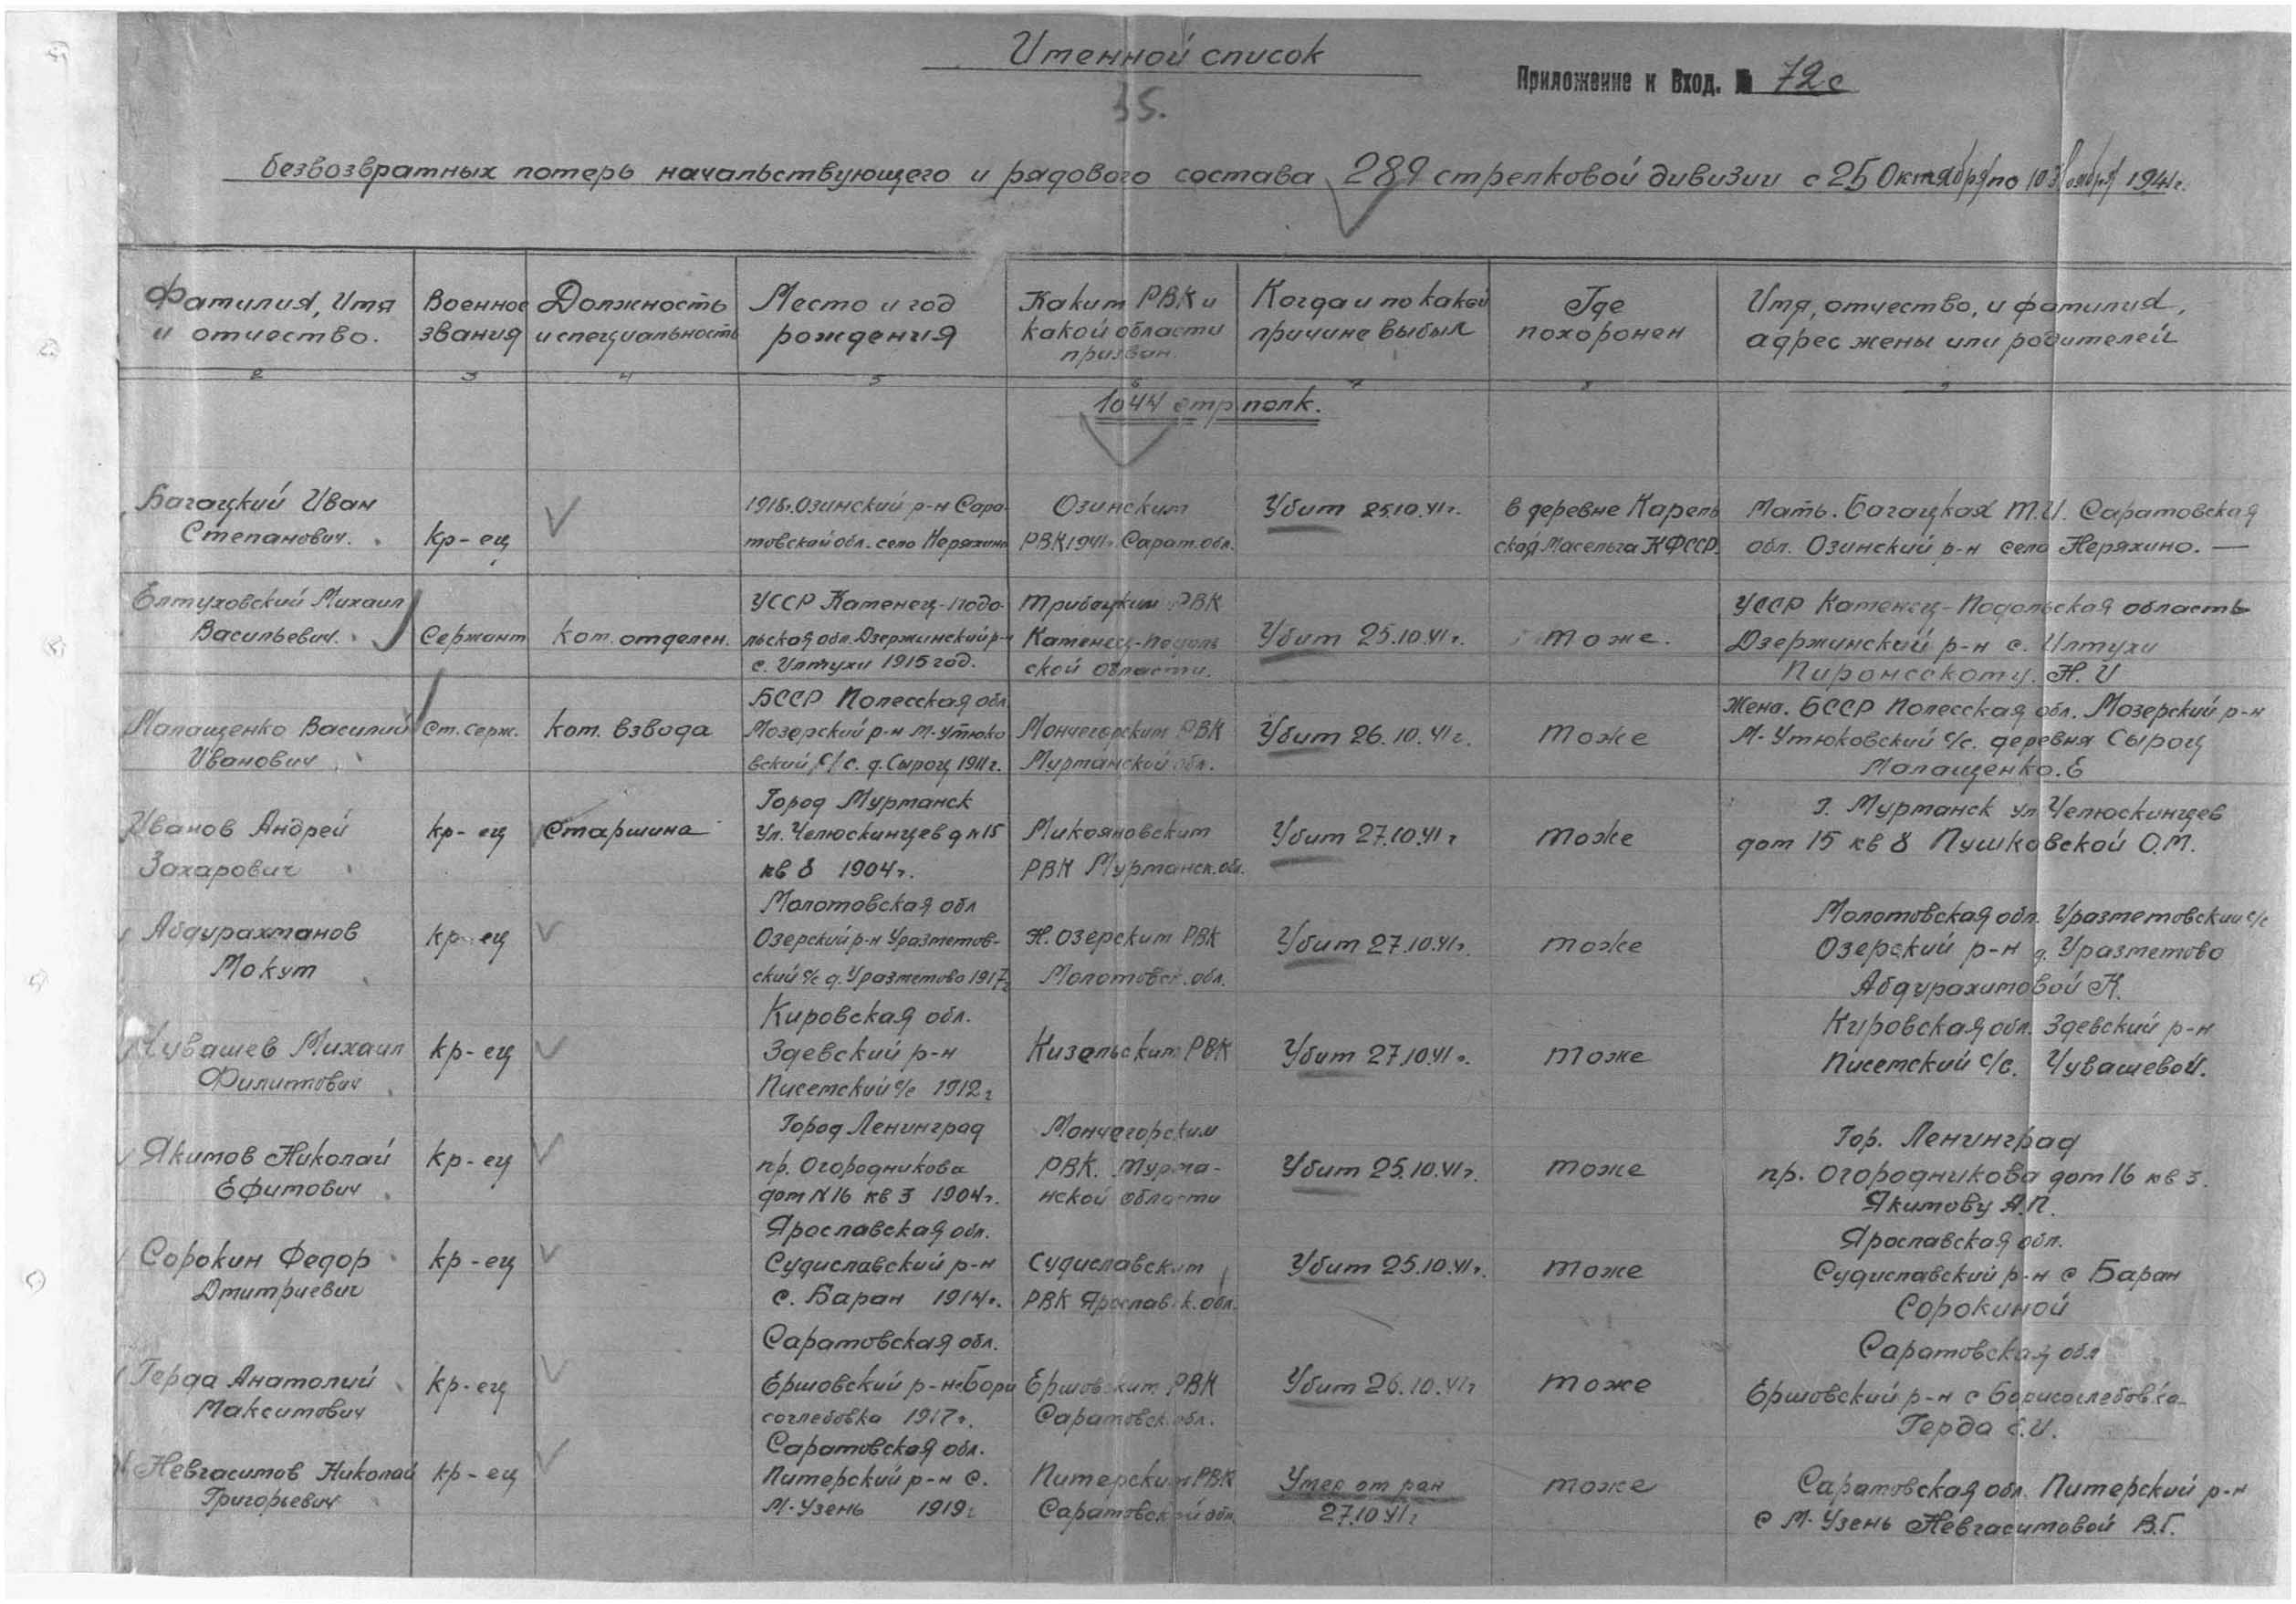 Именной список
Приложение к Вход. № 72с
35.
безвозвратных потерь начальствующего и рядового состава 289 стрелковой дивизии с 25 Октября по 10 Ноября 1941г.
Фамилия, Имя и отчество.
Военное звания
Должность и специальность
Место и год рождения
Каким РВК и какой области призван
Когда и по какой причине выбыл
Где похоронен
Имя, отчество, и фамилия, адрес жены или родителей
2 3 4 5 6 7 8 9
1044 стр. полк.
Багацкий Иван
Степанович.
кр-ец
1918г. Озинский р-н Сара-
товской обл. село Неряхино
Озинским
РВК 1941г. Сарат. обл.
Убит 25.10.41г.
в деревне Карель
ская Масельга КФССР.
Мать. Багацкая Т.И. Саратовская
обл. Озинский р-н село Неряхино. —
Елтуховский Михаил
Васильевич.
Сержант
ком. отделен.
УССР Каменец-Подо-
льская обл. Дзержинский р-н
с. Илтухи 1915 год.
РВК
Каменец-Подоль
ской области.
Убит 25.10.41г.
тоже.
УССР Каменец-Подольская область
Дзержинский р-н с. Илтухи
Н. И
Малащенко Василий
Иванович
Ст. серж.
ком. взвода
БССР Полесская обл.
Мозерский р-н М-Утюко
вский с/с. д. Сырод 1911г.
Мончегорским РВК
Мурманской обл.
Убит 26.10.41г.
тоже
Жена. БССР Полесская обл. Мозерский р-н
М-Утюковский с/с. деревня Сырод
Малащенко. Е
Иванов Андрей
Захарович
кр-ец
Старшина
Город Мурманск
Ул. Челюскинцев д №15
кв 8 1904г.
Микояновским
РВК Мурманск. обл.
Убит 27.10.41г
тоже
г. Мурманск ул Челюскинцев
дом 15 кв 8 Пушковской О.М.
Абдурахманов
Мокут
кр-ец
Молотовская обл
Озерский р-н Уразметов-
ский с/с д. Уразметово 1917г
Н. Озерским РВК
Молотовск. обл.
Убит 27.10.41г.
тоже
Молотовская обл. Уразметовский с/с
Озерский р-н д. Уразметово
Абдурахимовой К.
Чувашев Михаил
Филиппович
кр-ец
Кировская обл.
Здевский р-н
Писемский с/с 1912г
Кизельским РВК
Убит 27.10.41г.
тоже
Кировская обл. Здевский р-н
Писемский с/с. Чувашевой.
Якимов Николай
Ефимович
кр-ец
Город Ленинград
пр. Огородникова
дом №16 кв 3 1904г.
Мончегорским
РВК. Мурма-
нской области
Убит 25.10.41г.
тоже
Гор. Ленинград
пр. Огородникова дом 16 кв 3.
Якимову А.П.
Сорокин Федор
Дмитриевич
кр-ец
Ярославская обл.
Судиславский р-н
с. Баран 1914г.
Судиславским
РВК Ярославск. обл.
Убит 25.10.41г.
тоже
Ярославская обл.
Судиславский р-н с Баран
Сорокиной
Герда Анатолий
Максимович
кр-ец
Саратовская обл.
Ершовский р-н с Бори
соглебовка 1917г.
Ершовским РВК
Саратовск. обл.
Убит 26.10.41г
тоже
Саратовская обл
Ершовский р-н с Борисоглебовка
Герда Е.И.
Невгасимов Николай
Григорьевич
кр-ец
Саратовская обл.
Питерский р-н с.
М-Узень 1919г
Питерским РВК
Саратовской обл.
Умер от ран
27.10 41г
тоже
Саратовская обл. Питерский р-н
с М-Узень Невгасимовой В.Г.